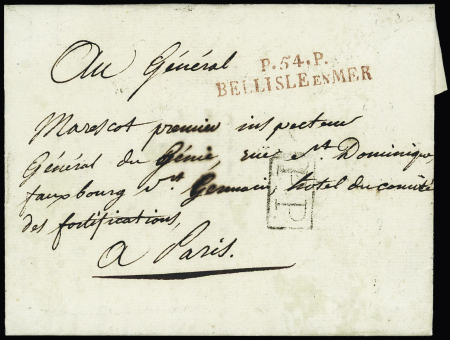 Au Général
P.54.P.
BELLISLE EN MER
Marescot premier inspecteur
Général du Génie, rue St Dominique
fauxbourg St Germain, hotel du comité
des fortifications,
a Paris.
P.P.